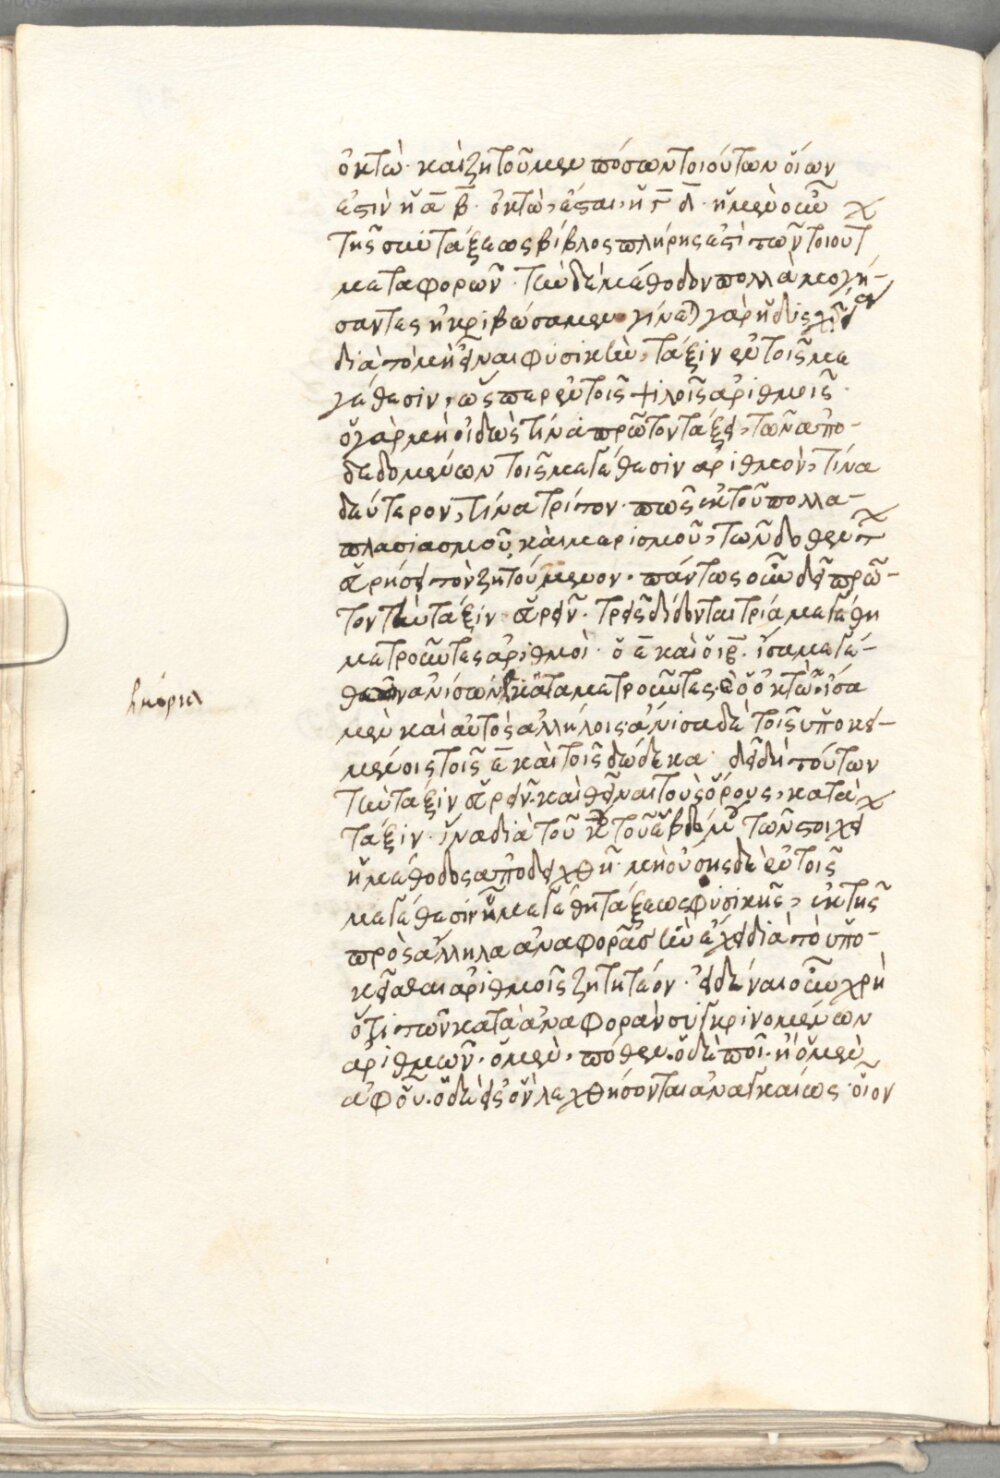 ὀκτώ· καὶ ζητοῦμεν πόσων τοιούτων οἵων
ἐστὶν ἡ α β ὀκτώ, ἔσται, ἡ γ δ. ἡ μὲν οὖν
τῆς συντάξεως βίβλος πλήρης ἐστὶ τῶν τοιούτ
μεταφορῶν· τὴν δὲ μέθοδον πολλὰ μογή-
σαντες ἠκριβώσαμεν γίνεται γὰρ ἡ
διὰ τὸ μὴ εἶναι φυσικὴν, τάξιν ἐν τοῖς με
γέθεσιν, ὥσπερ ἐν τοῖς ψιλοῖς ἀριθμοῖς·
ὁ γὰρ μὴ εἰδὼς τίνα πρῶτον τάξει, τῶν ἀπο-
δεδομένων τοῖς μεγέθεσιν ἀριθμὸν, τίνα
δεύτερον, τίνα τρίτον· πῶς ἐκ τοῦ πολλα-
πλασιασμοῦ καὶ μερισμοῦ, τῶν δοθέντ
εὑρήσει τὸν ζητούμενον· πάντως οὖν δεῖ πρῶ-
τον τὴν τάξιν εὑρεῖν· τρεῖς δίδονται τρία μεγέθη
μετροῦντες ἀριθμοὶ· ὁ ε καὶ ὁ ιβ· ἴσα μεγέ-
ἀνίσων καταμετροῦντες ὁ ὀκτὼ ἴσα
μὲν καὶ αὐτὸς ἀλλήλοις ἄνισα δὲ τοῖς ὑποκει-
μένοις τοῖς ε καὶ τοῖς δώδεκα· δεῖ δὴ τούτων
τὴν τάξιν εὑρεῖν· καὶ θεῖναι τοὺς ὅρους, κατὰ
τάξιν· ἵνα διὰ τοῦ τοῦ ἑβδόμου τῶν στοιχεί
ἡ μέθοδος ἀποδειχθῇ· μὴ οὔσης δὲ ἐν τοῖς
μεγέθεσιν τάξεως φυσικῆς, ἐκ τῆς
πρὸς ἄλληλα ἀναφορᾶς ἣν ἔχει διὰ τὸ ὑπο-
κεῖσθαι ἀριθμοῖς ζητητέον· εἰδέναι οὖν χρὴ
ὅτι τῶν κατὰ ἀναφορὰν συγκρινομένων
ἀριθμῶν· ὁ μὲν, πόθεν· ὁ δὲ ποῖ· ἢ ὁ μὲν
ἀφ οὗ· ὁ δὲ εἰς ὃν λεχθήσονται ἀναγκαίως· οἷον